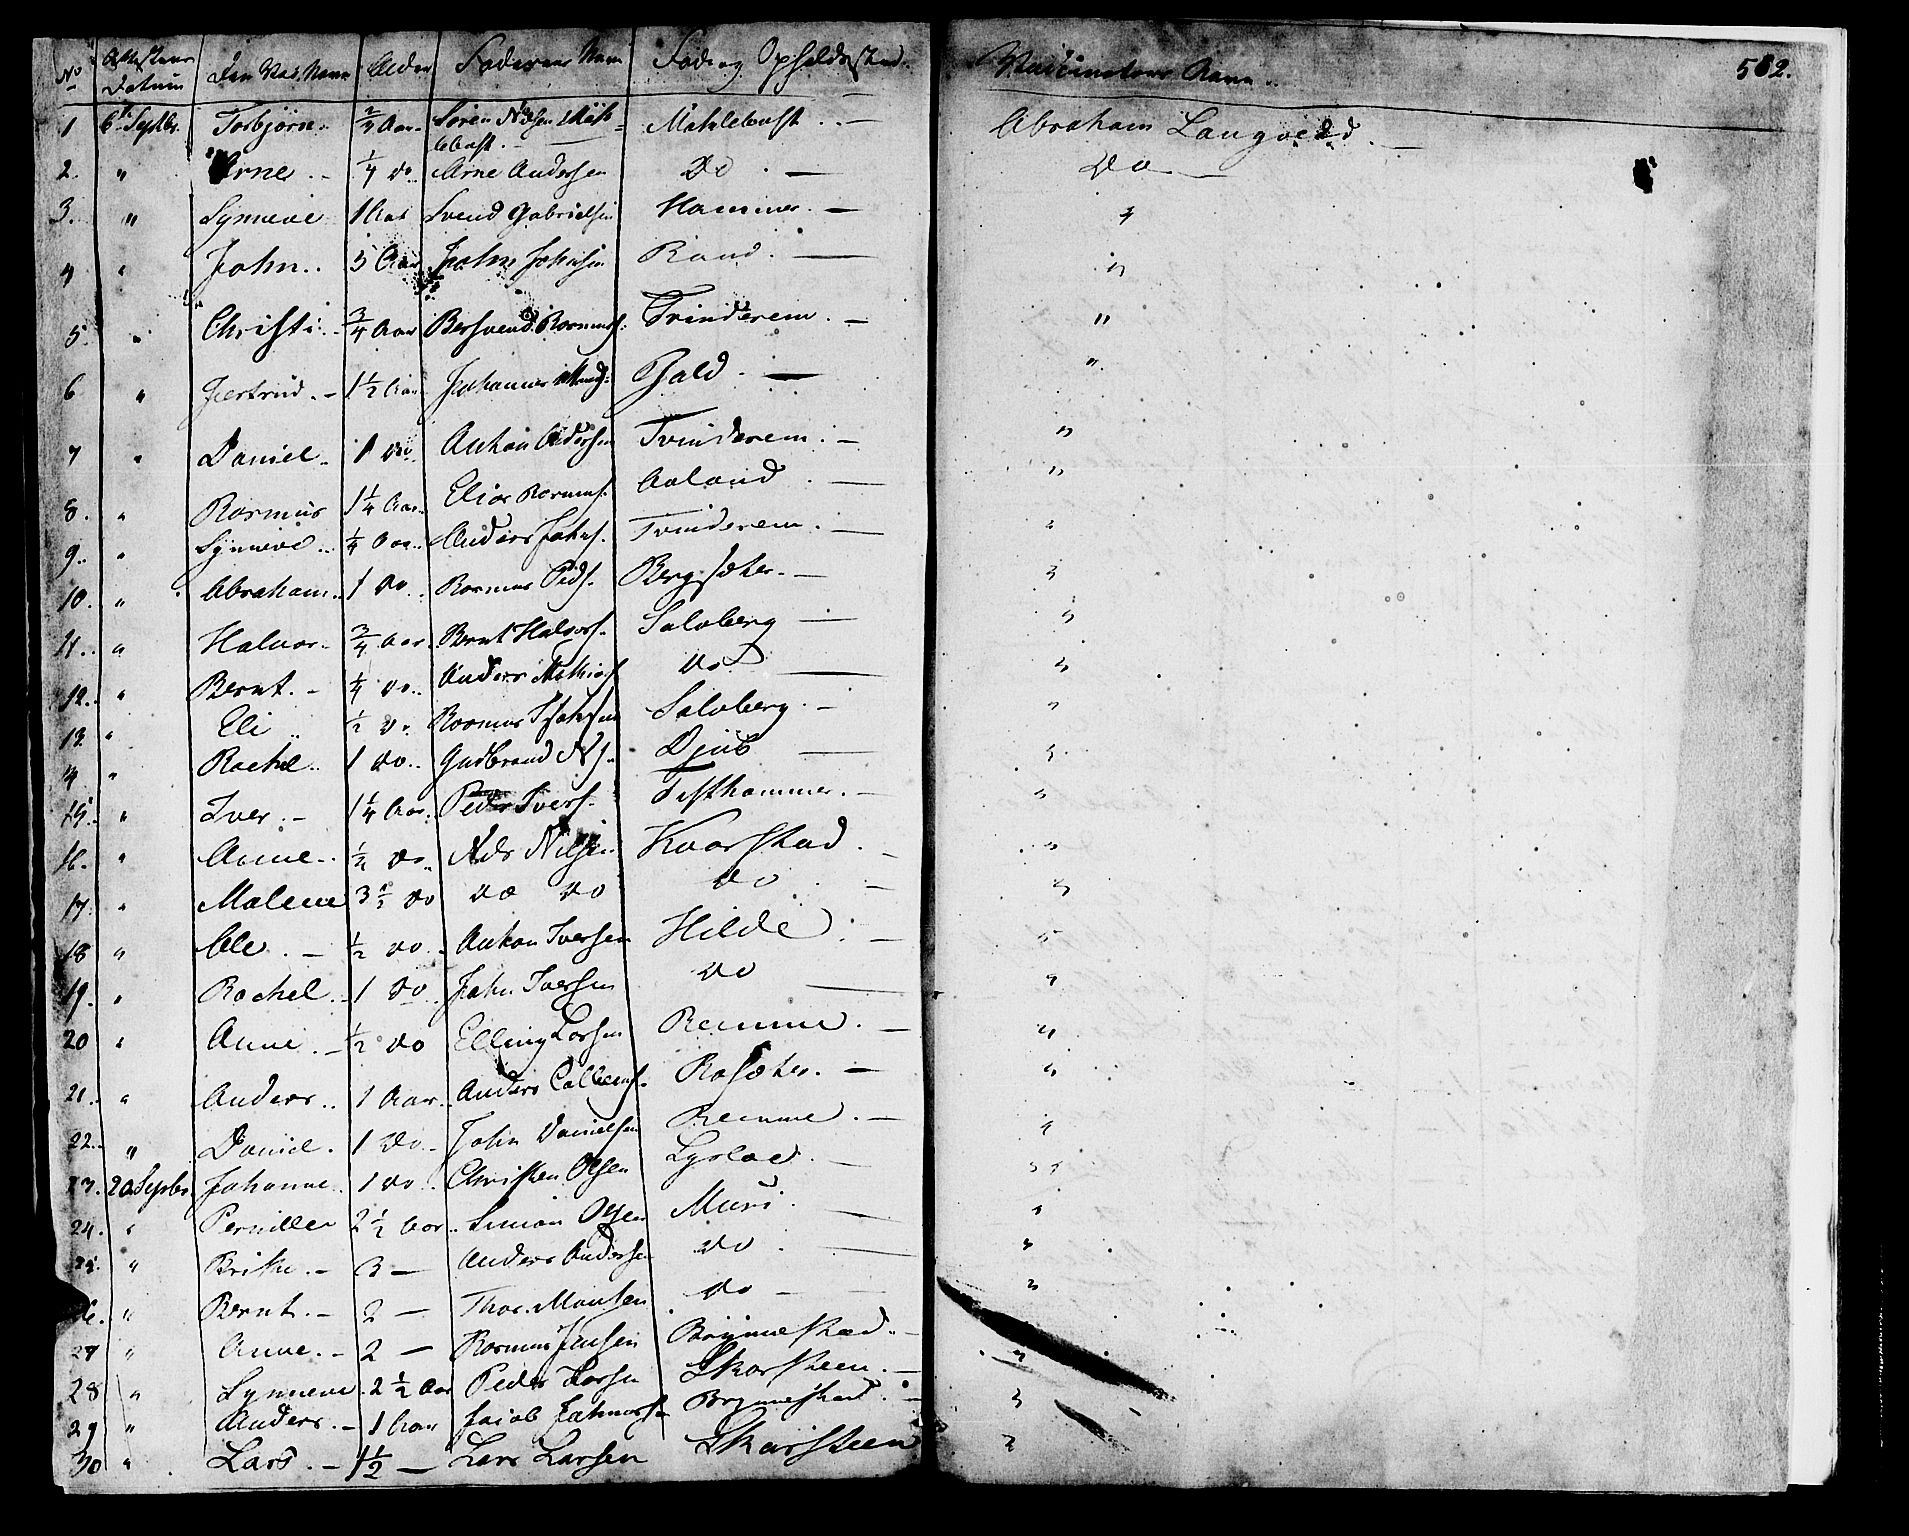 No Attestens Datum Den Vac. Navn Alder Faderens Navn Føde og Opholdssted. Vaccinateurs Navn. 582.
1 6te Septbr. Torbjørn. Aar Søren Nilsen Mahlebast. Abraham Langvedd.
2. " Arne. 1/4 do. Arne Andersen Do. Do
3. " Synneve 1 Aar Svend Gabrielsen Hammer. "
4 " John. 3 Aar John Johnsen Rand. "
5. " Christi 3/4 Aar Bersvend Rasmuss. Tvinderem. "
6 " Jertrud. 1 1/2 Aar Johannes Fald. "
7 " Daniel. 1 do. Anton Andersen Tvinderem. "
8. " Rasmus 1 1/4 Aar. Elias Rasmuss. Aaland. "
9. " Synneve. 1/4 Aar. Anders Johns. Tvinderem. "
10. " Abraham. 1 do. Rasmus Peds. Bergsæter. "
11. " Halvor. 3/4 Aar. Bernt Halvors. Salvberg "
12. " Bernt. 1/4 do. Anders Mathias Do "
13. " Eli 1/2 do. Rasmus Salvberg. "
14 " Rachel. 1 do. Gudbrand N.s. Djub "
15. " Iver. 1 1/4 Aar. Peder Ivers. Festhammer. "
16. " Anne. 1/2 do. Nils Nilsen Kvarstad. "
17. " Malene 3 1/2 do do do do "
18 " Ole. 1/2 do. Anton Iversen Hilde. "
19. " Rachel. 1 do. John Iversen do "
20 " Anne. 1/2 do Elling Larsen Remme. "
21. " Anders. 1 Aar. Anders Rasæter. "
22. " Daniel. 1 do. John Danielsen Remme. "
23. 20 Septbr. Johanne. 1 do. Christen Olsen "
24. " Pernille 2 1/2 Aar. Simon Olsen Muri. "
25. " Brithe. 3 — Anders Andersen do. "
26. " Bernt. 2 — Thor. Monsen do "
27 " Anne. 2 — Rasmus Jensen Brynnestad. "
28 " Synneve. 2 1/2 Aar Peder Larsen Skarsteen. "
29 " Anders. 1 Aar Jacob Brynnestad. "
30 " Lars. 1 1/2 — Lars Larsen Skarsteen "